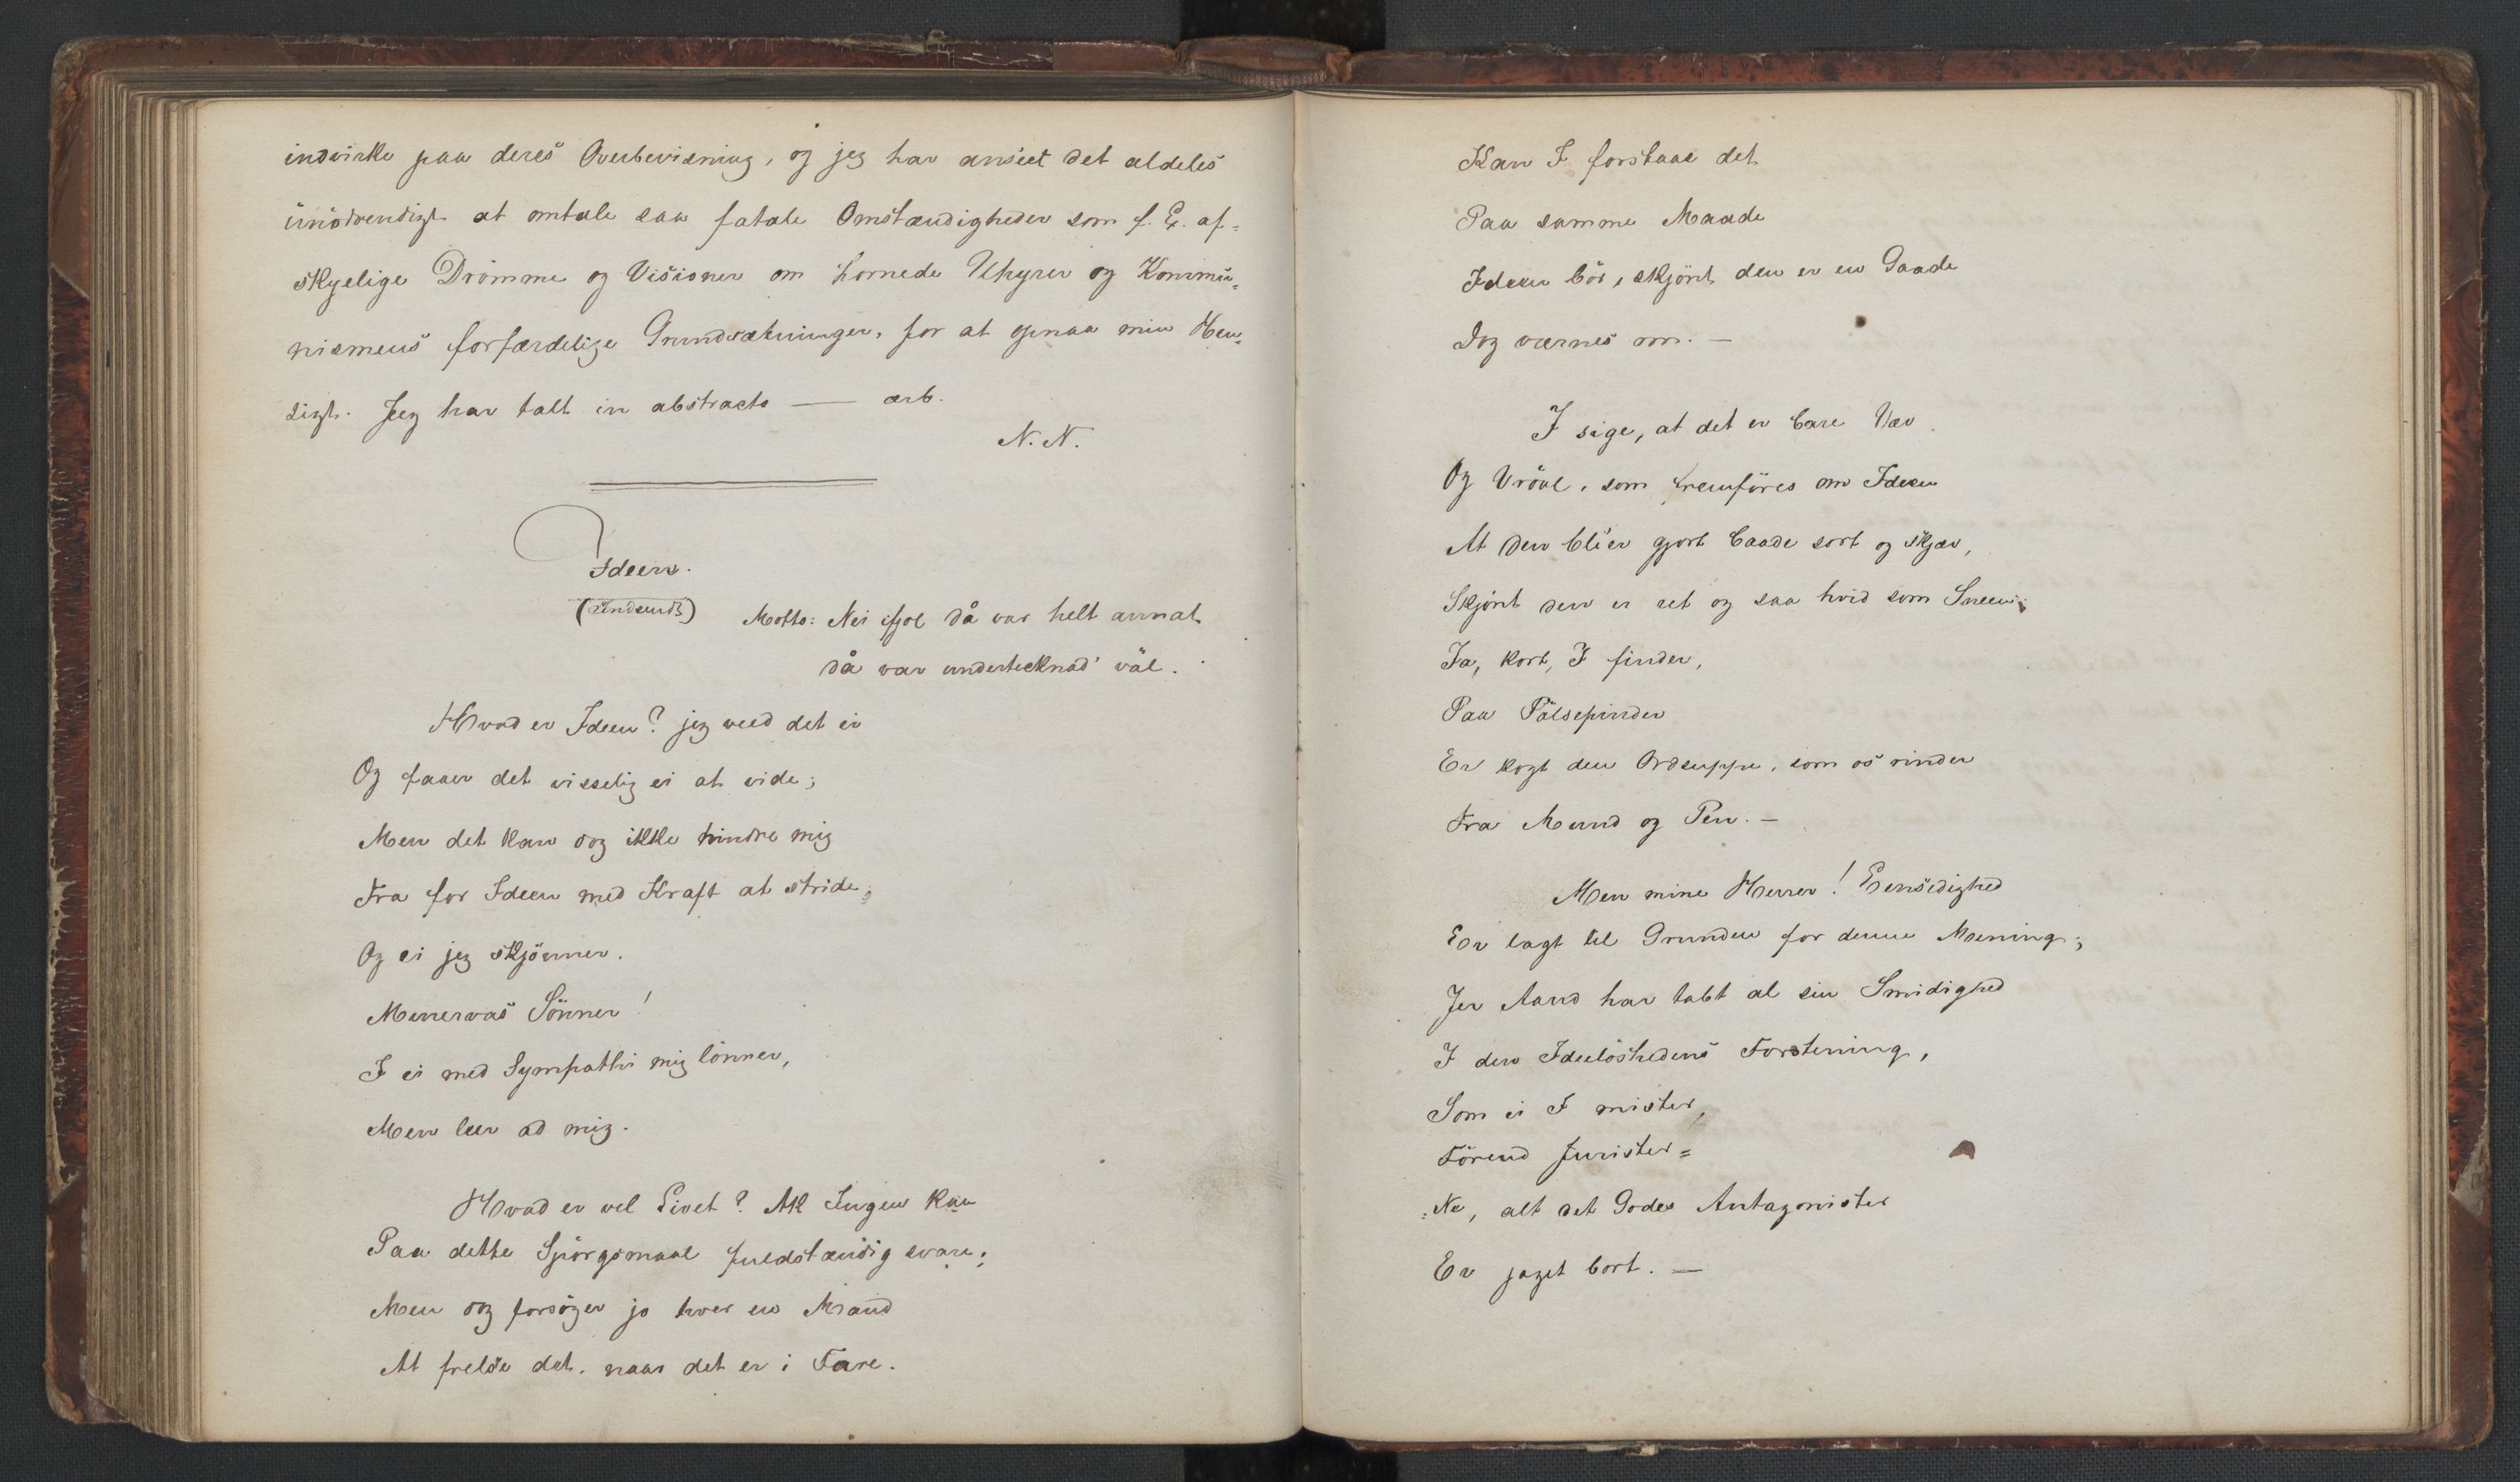 indvirke paa deres Overbevisning, og jeg har anseet det aldeles
ünödvendigt at omtale saa fatale Omstændigheder som f. Ex. af=
skyelige Drömme og Visioner om hornede Uhyrer og Kommü=
nismens forfærdelige Grundsætninger, for at opnaa min Hen=
sigt. Jeg har talt in abstracto — ærb.
N. N.
Ideen.
(Indsendt)
Motto: Nei ifjol då var helt annat
då var undertecknad' väl.
Hvad er Ideen? jeg veed det ei
Og faaer det visselig ei at vide;
Men det kan dog ikke hindre mig
Fra for Ideen med Kraft at stride;
Og ei jeg skjönner,
Minervas Sönner!
I ei med Sympathi mig lönner,
Men leer ad mig.
Hvad er vel Livet? Ak Ingen kan
Paa dette Spörgsmaal fuldstændig svare;
Men dog forsöger jo hver en Mand
At frelse det, naar det er i Fare.
Kan I forstaae det
Paa samme Maade
Ideen bör, skjönt den er en Gaade
Dog værnes om. —
I sige, at det er bare Væv
Og Vrövl, som fremföres om Ideen
At den bli'er gjort baade sort og skjæv,
Skjönt den er ret og saa hvid som Sneen;
Ja, kort, I finder,
Paa Pölsepinder
Er kogt den Ordsuppe, som os rinder
Fra Mund og Pen. —
Men mine Herrer! Eensidighed
Er lagt til Grunden for denne Mening;
Jer Aand har tabt al sin Smidighed
I den Ideelöshedens Forstening,
Som ei I mister,
Förend Jurister=
=Ne, alt det Godes Antagonister
Er jaget bort. —